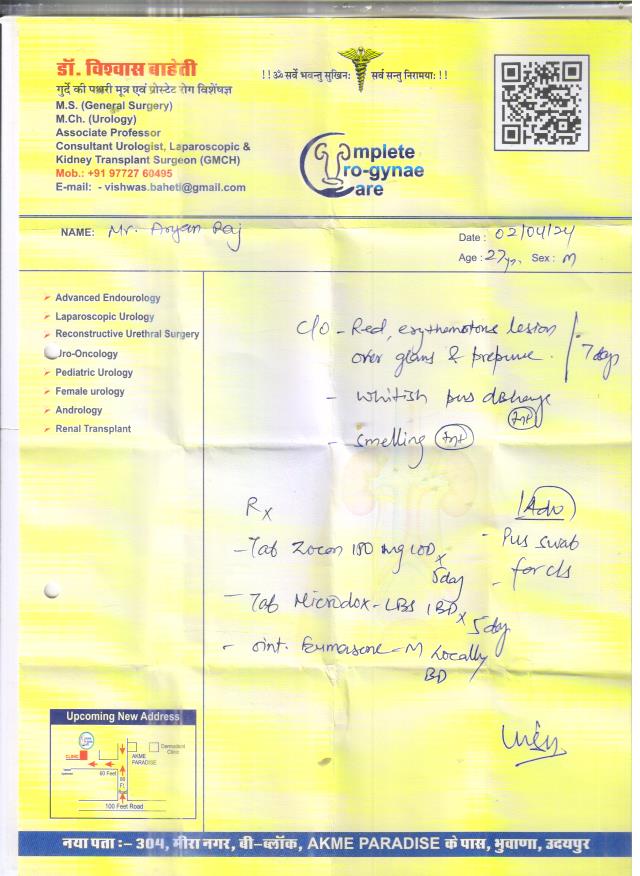 डॉ. विश्वास बाहेती
गुर्दे की पथरी मूत्र एवं प्रोस्टेट रोग विशेषज्ञ
M.S. (General Surgery)
M.Ch. (Urology)
Associate Professor
Consultant Urologist, Laparoscopic &
Kidney Transplant Surgeon (GMCH)
Mob.: +91 97727 60495
E-mail: - vishwas.baheti@gmail.com
!! ॐ सर्वे भवन्तु सुखिनः सर्व सन्तु निरामयाः !!
Complete
Uro-gynae
Care
NAME: Mr. Aryan Raj
Date: 02/04/24
Age: 27yr, Sex: M
Advanced Endourology
Laparoscopic Urology
Reconstructive Urethral Surgery
Uro-Oncology
Pediatric Urology
Female urology
Andrology
Renal Transplant
C/O - Red, erythematous lesion
over glans & prepuce. 7 days
- Whitish pus discharge
- smelling
Rx
- Tab Zocon 150 mg 1OD x 5day
- Tab Microdox-LBS 1BD x 5day
- oint. -M Locally
BD
Adv
- Pus swab
- for c/s
Upcoming New Address
CLINIC
AKME
PARADISE
Dermadent
Clinic
60 Feet
80
Ft.
Road
100 Feet Road
नया पता :- 304, मीरा नगर, बी-ब्लॉक, AKME PARADISE के पास, भुवाणा, उदयपुर